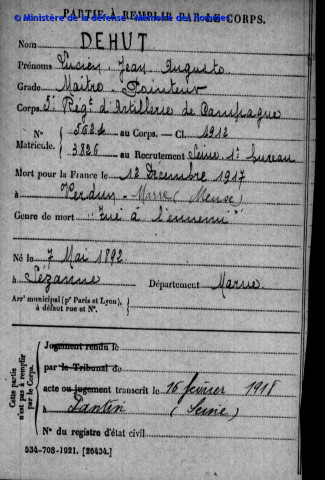 © Ministère de la défense - Mémoire des hommes
PARTIE À REMPLIR PAR LE CORPS.
Nom DEHUT
Prénoms Lucien Jean Auguste
Grade Maître Pointeur
Corps 5e Régt d'Artillerie de Campagne
N° 5624 au Corps. — Cl. 1912
Matricule. 3826 au Recrutement Seine 1er bureau
Mort pour la France le 12 Décembre 1917
à Verdun - Marre (Meuse)
Genre de mort Tué à l'ennemi
Né le 7 Mai 1892
à Sézanne Département Marne
Arrt municipal (pr Paris et Lyon),
à défaut rue et N°.
Cette partie n'est pas à remplir par le Corps.
Jugement rendu le
par le Tribunal de
acte ou jugement transcrit le 16 février 1918
à Pantin (Seine)
N° du registre d'état civil
534-708-1921. [26434.]